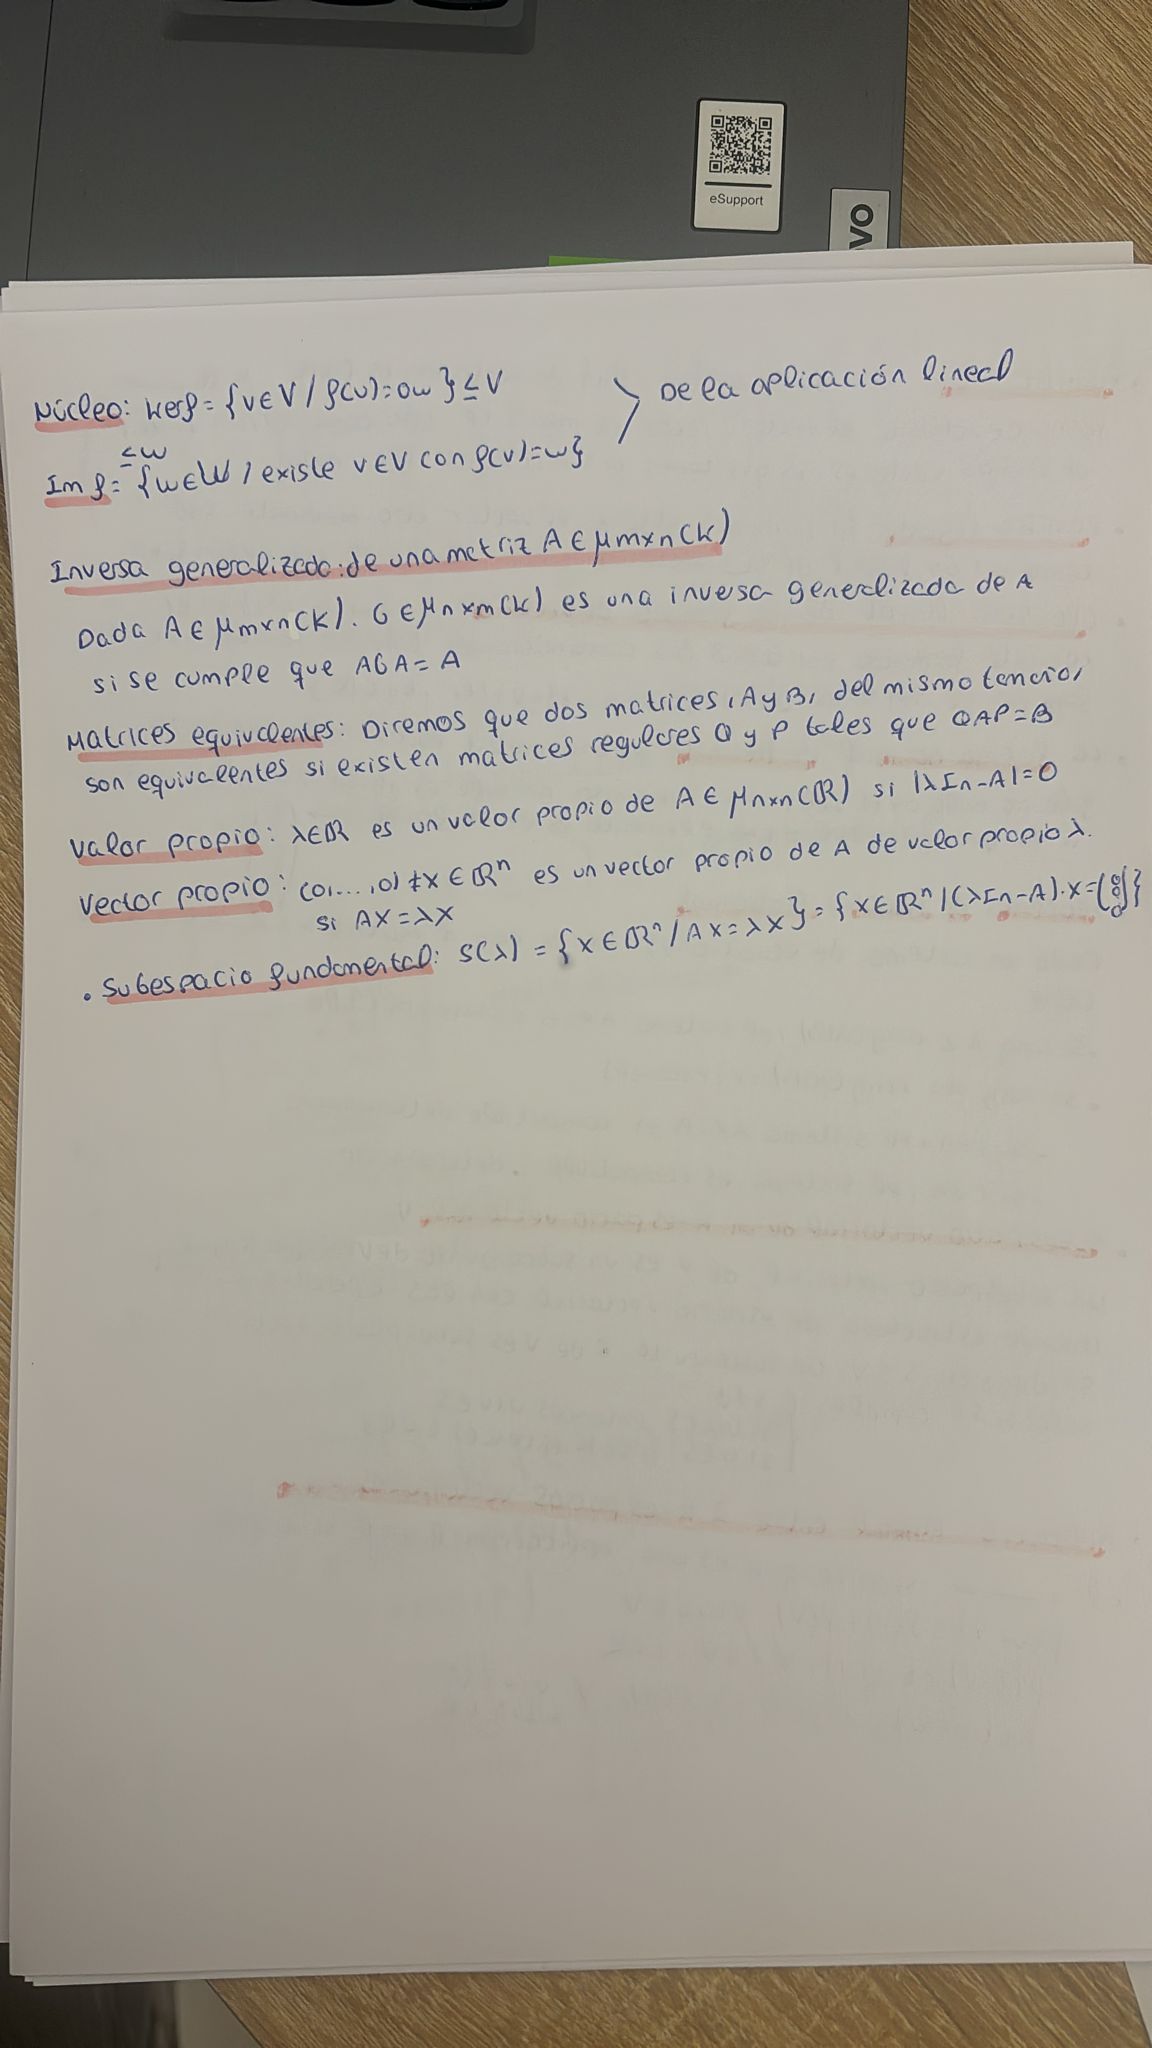 eSupport
ovo
Núcleo: Kerf = {v∈V / f(v)=0w} ≤ V
De la aplicación lineal
≤W
Im f = {w∈W / existe v∈V con f(v)=w}
Inversa generalizada: de una matriz A ∈ μm×n(K)
Dada A ∈ μm×n(K). G ∈ μn×m(K) es una inversa generalizada de A
si se cumple que AGA = A
Matrices equivalentes: Diremos que dos matrices, A y B, del mismo tamaño,
son equivalentes si existen matrices regulares Q y P tales que QAP = B
Valor propio: λ∈ℝ es un valor propio de A ∈ μn×n(ℝ) si |λIn-A|=0
Vector propio: (0,...,0) ≠ X ∈ ℝⁿ es un vector propio de A de valor propio λ.
si AX = λX
. Subespacio fundamental: S(λ) = {X ∈ ℝⁿ / AX = λX} = {X ∈ ℝⁿ / (λIn-A)·X = (0 0 0)}